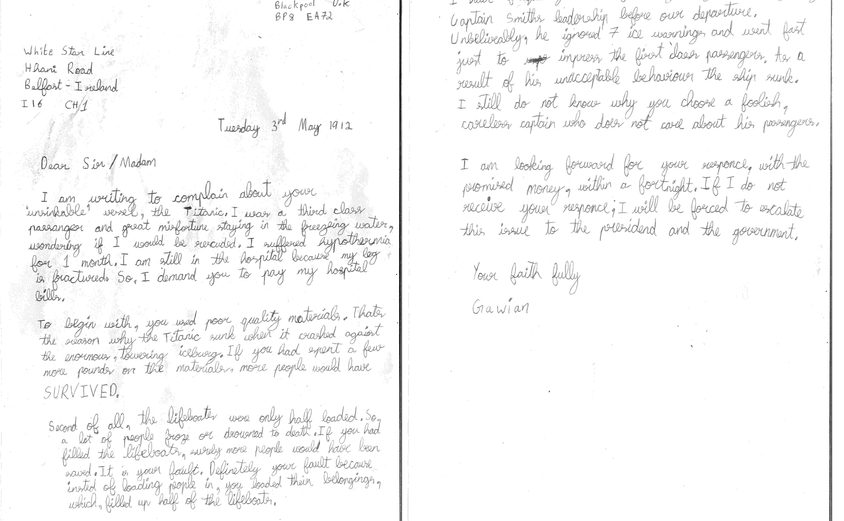 Blackpool U.K
BP8 EA72
White Star Line
Hhani Road
Belfast - Ireland
I16 CH/1
Tuesday 3rd May 1912
Dear Sir/Madam
I am writing to complain about your
'unsinkable' vessel, the Titanic. I was a third class
passenger and great misfortune staying in the freezing water,
wondering if I would be rercuded. I suffered hypothermia
for 1 month. I am still in the hospital because my leg
is fractured. So, I demand you to pay my hospital
bills.
To begin with, you used poor quality materials. Thats
the reason why the Titanic sunk when it crashed against
the enormous, towering iceburg. If you had spent a few
more pounds on the materials, more people would have
SURVIVED.
Second of all, the lifeboats were only half loaded. So,
a lot of people froze or drowned to death. If you had
filled the lifeboats, surely more people would have been
saved. It is your fault. Definetely your fault because
insted of loading people in, you loaded their belongings,
which, filled up half of the lifeboats.
Captain Smiths leadership before our departure.
Unbelivably, he ignord 7 ice warnings and went fast
just to impress the first class passengers. As a
result of his unacceptable behaviour the ship sunk.
I still do not know why you choose a foolish,
careless captain who does not care about his passengers.
I am looking forward for your responce, with the
promised money, within a fortnight. If I do not
receive your responce, I will be forced to escalate
this issue to the presidend and the government.
Your faith fully
Gawian